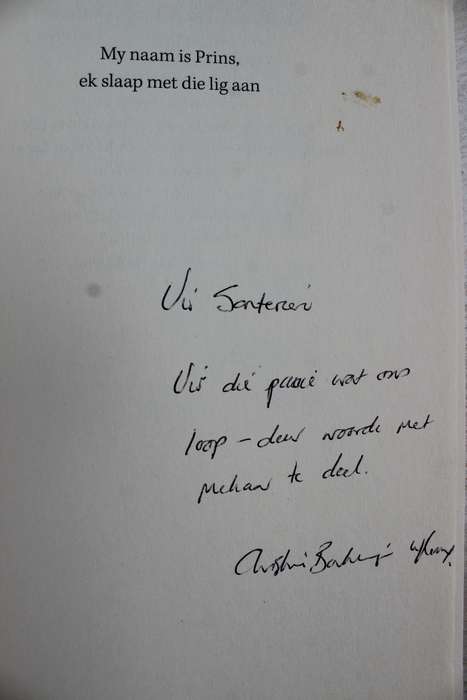 My naam is Prins,
ek slaap met die lig aan
Vir
Vir die paaie wat ons
loop – deur woorde met
mekaar te deel.